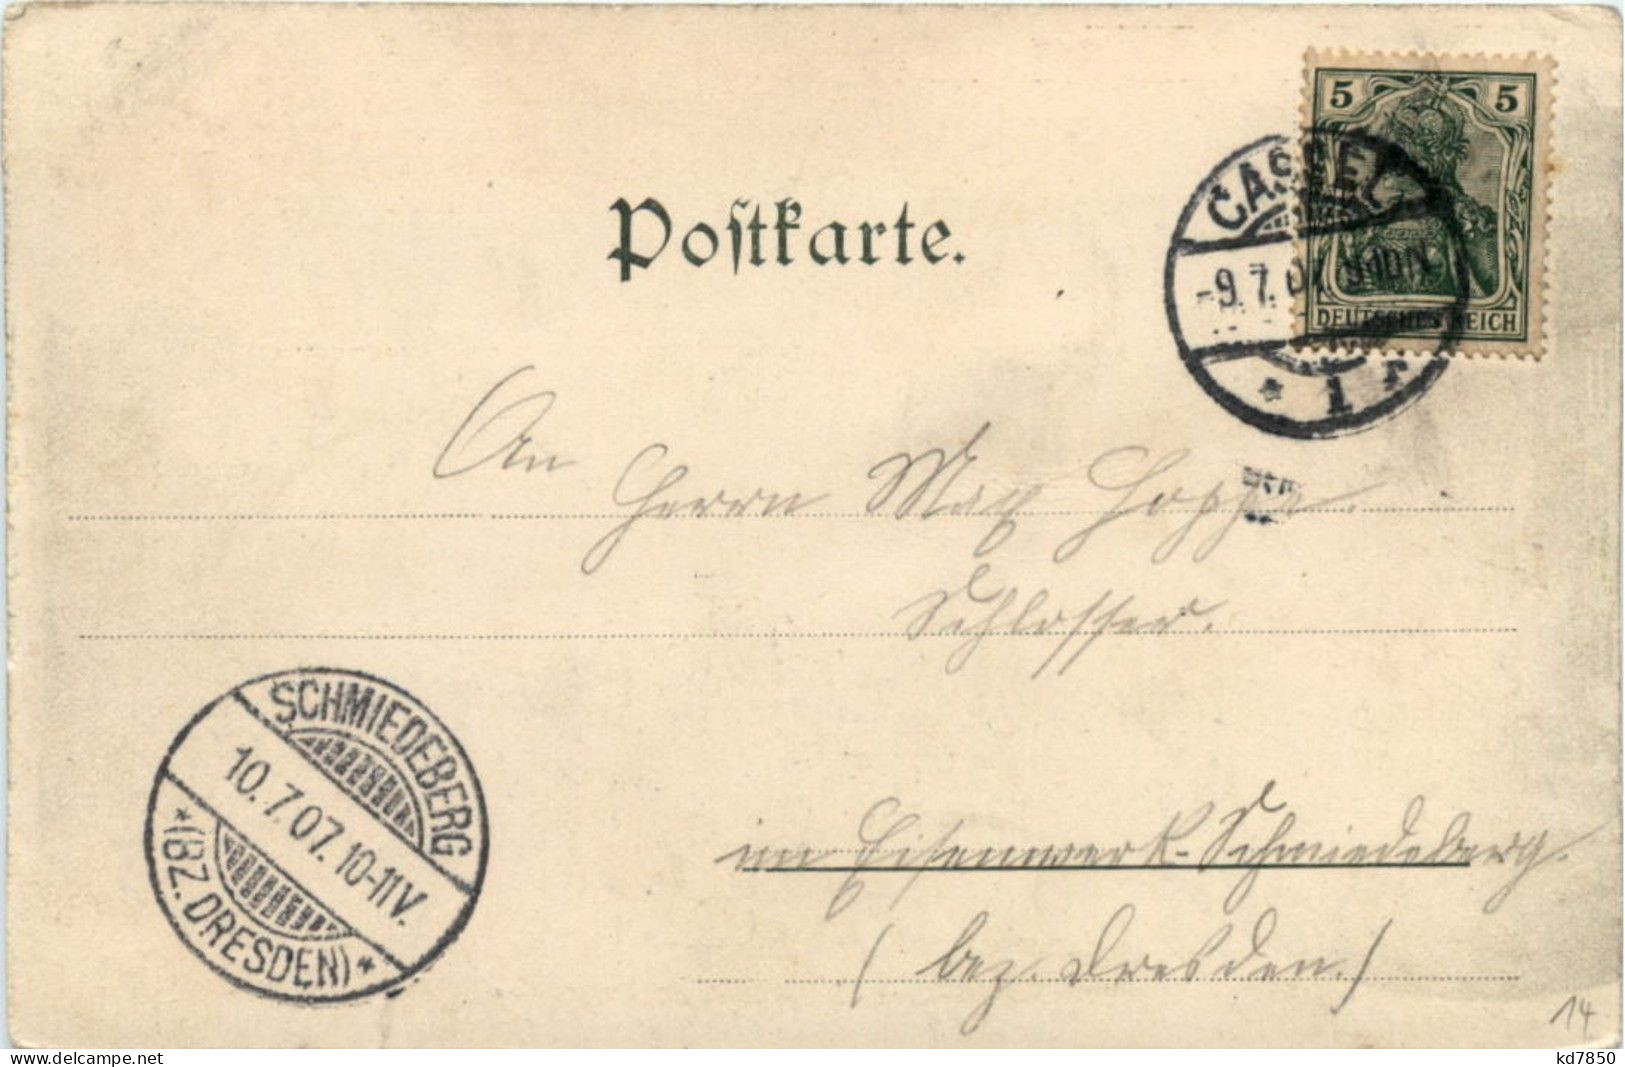 5 5
CASSEL
-9.7.07. 9-10N.
DEUTSCHES REICH
* 1 r
Postkarte.
An
Herrn Max Hoppe.
Schlosser.
SCHMIEDEBERG
10.7.07. 10-11V.
*(BZ. DRESDEN)*
im Eisenwerk-Schmiedeberg.
(bez. Dresden.)
14
kd7850